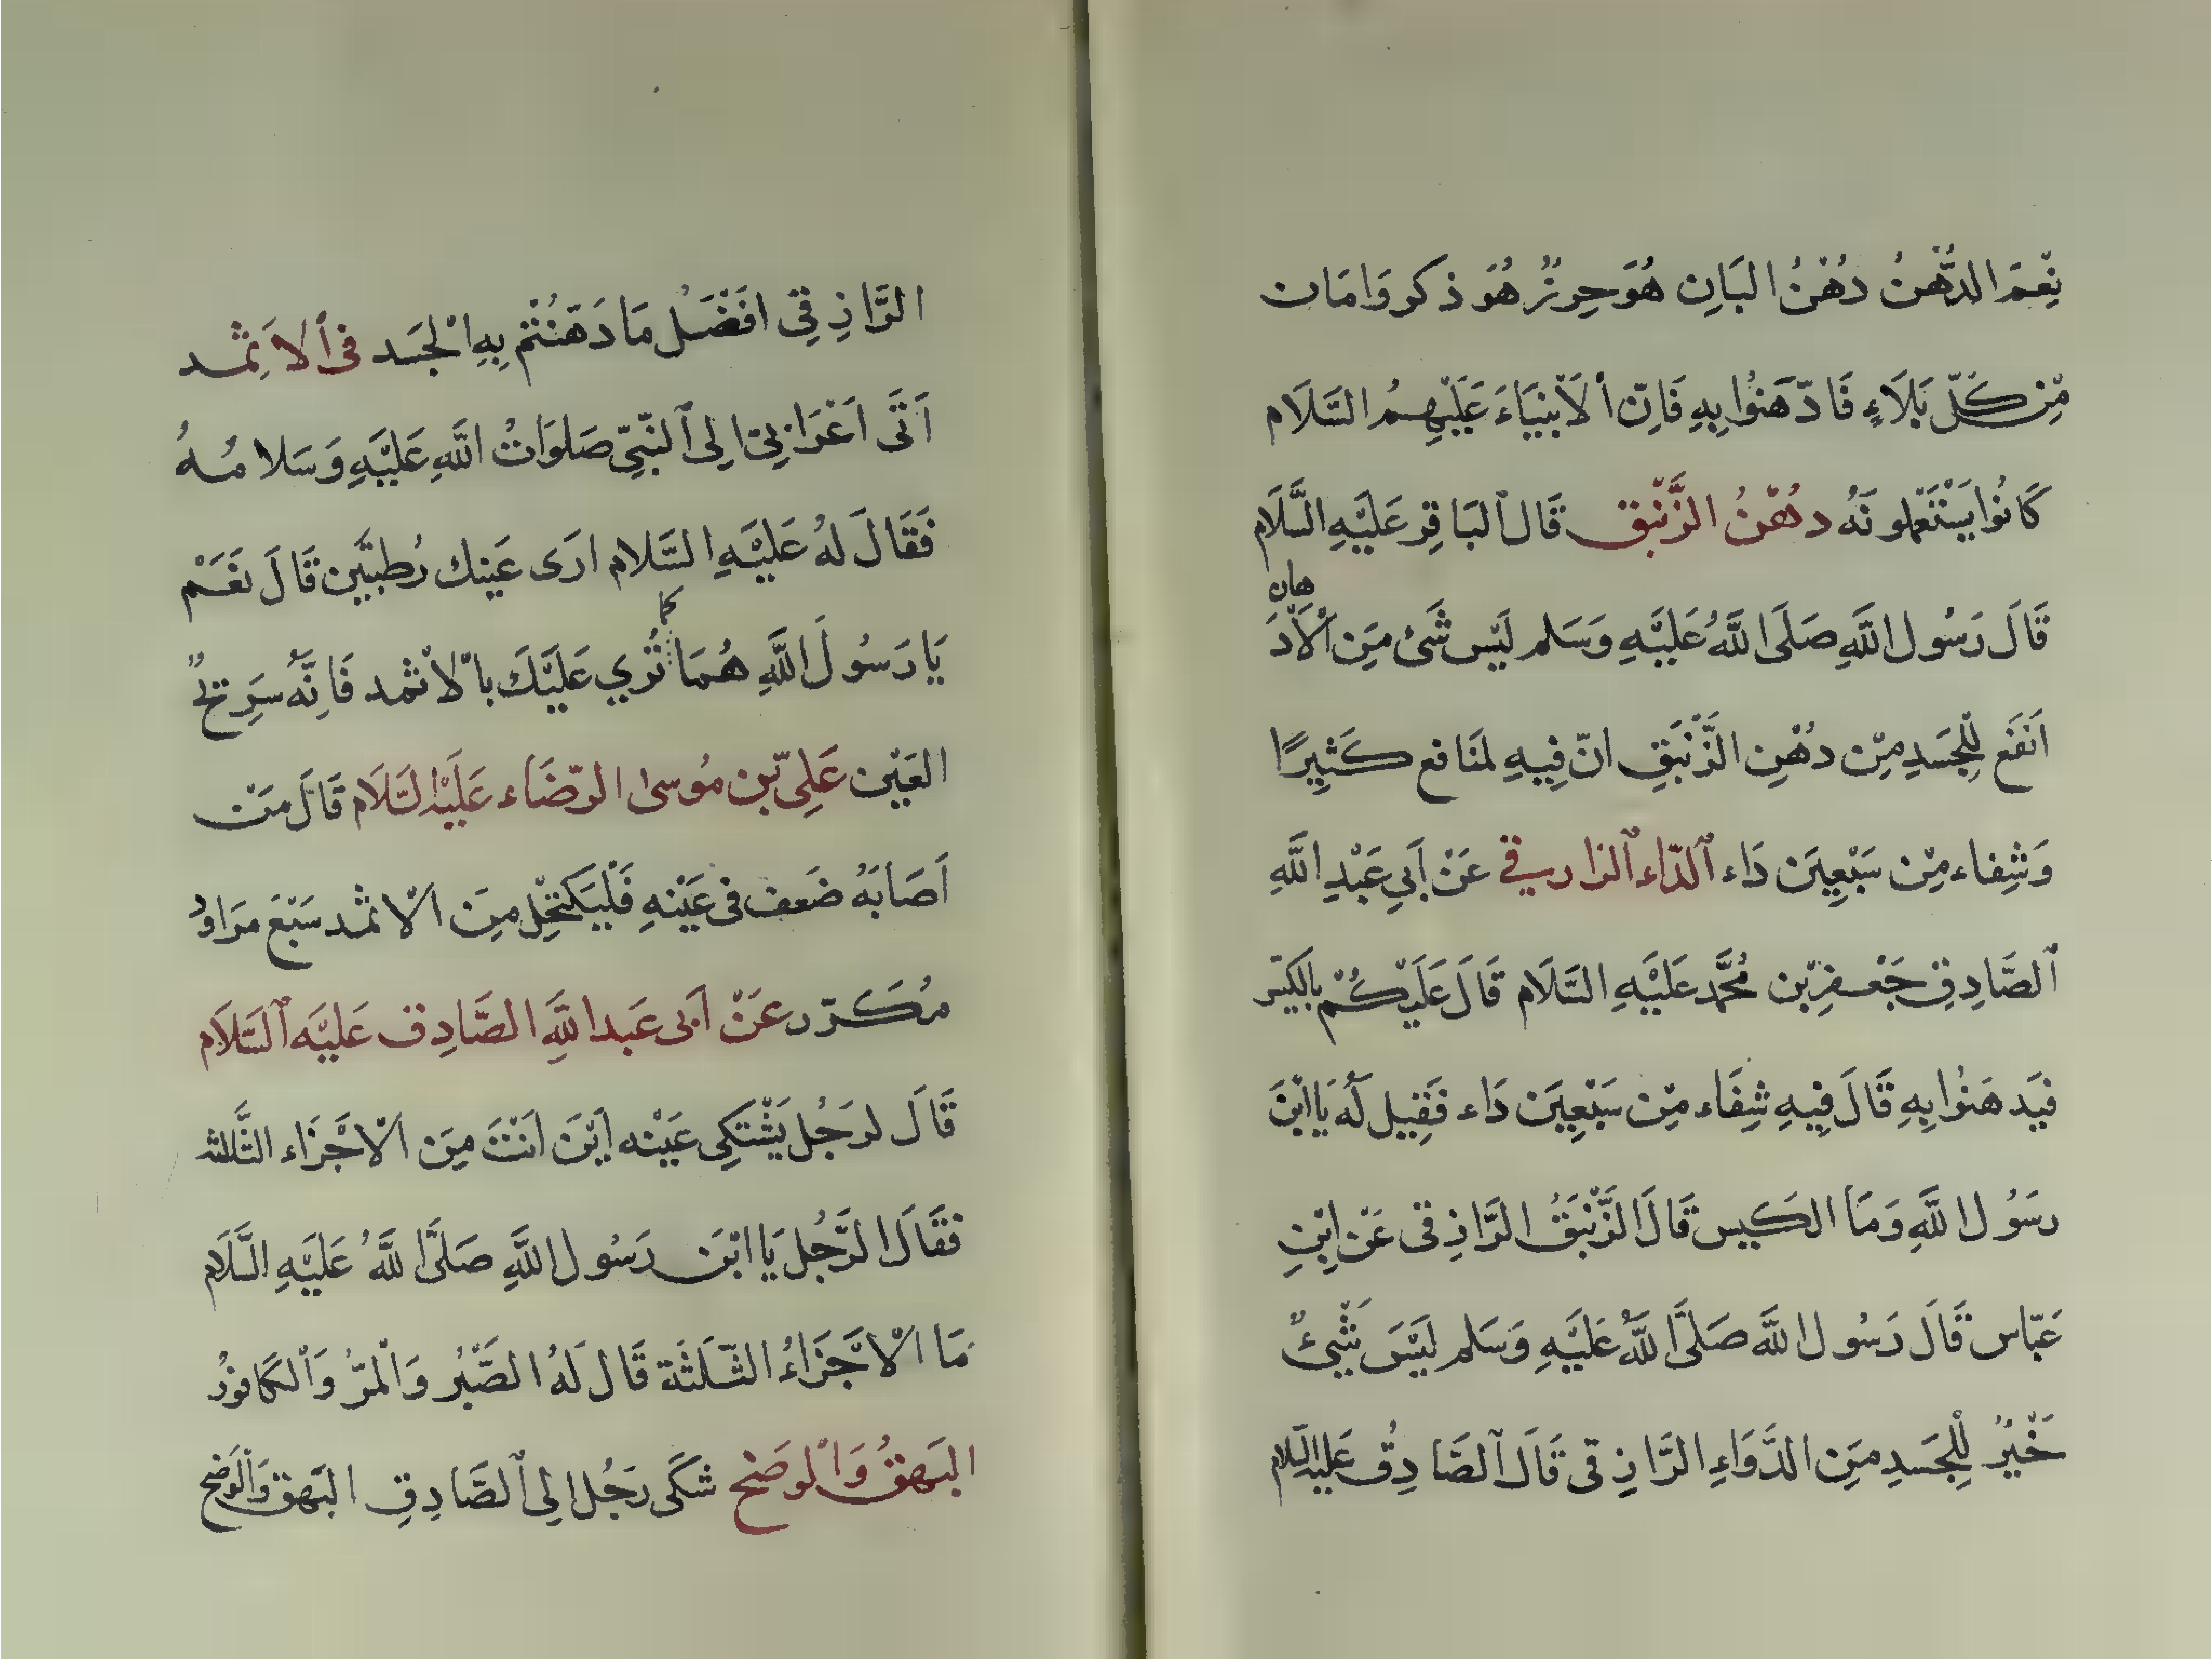 نِعْمَ الدُّهْنُ دُهْنُ البَانِ هُوَ حِرزٌ هُوَ ذكر وَامَان
مِّن كُلّ بَلَاءٍ فَادّهَنُوا بِهِ فَاِنّ اْلاَنْبِيَاءَ عَلَيْهِمُ السَّلَام
كَانُوا يَسْتَعْملونَهُ دُهْنُ الزَّنْبق قَال اَلبَاقِر عَلَيْهِ السَّلَام
قَالَ رَسُول اللَّهِ صَلَى اللَّهُ عَلَيْهِ وَسَلم لَيْس شَىْ مِنَ اْلاَدّهان
اَنفَع لِلْجَسَدِ مِنْ دُهْنِ الزَّنْبَقِ انّ فِيهِ لمَنَافع كَثِيرًا
وَشِفاء مِّنْ سَبْعِينَ دَاء اَلدّاء اَلزارسقي عَنْ اَبِي عَبْدِ اللَّهِ
اَلصَّادِقِ جَعْفرِ بْن مُحَّمد عَلَيْهِ السَّلَام قَالَ عَلَيْكُمْ بِالكَيْس
فيَدهَنُوا بِهِ قَالَ فِيهِ شِفَاء مِّن سَبْعِينَ دَاء فَقِيل لَهُ يَا ابْنَ
رسَوُل اللَّهِ وَمَا الكَيس قَالَ الزَّنْبَقُ الرَّازِقى عَن ابْنِ
عَبّاس قَالَ رَسُول اللَّه صَلَّى اللَّهُ عَلَيْهِ وَسَلم لَيْسَ شَيْئٌ
خَيْرٌ لِلْجَسَدِ مِنَ الدَّوَاءِ الرَّازِقى قَالَ اَلصَّادِقُ عَلَيْهِ السَّلام
الرَّازِقِي افَضَلْ مَا دَهَنْتُم بِهِ اْلجَسَد فى اَلاِثْمد
اَتَى اَعْرَابِيّ الِى اَلنَّبِيّ صَلوَاتُ اللَّهِ عَليْهِ وَسَلامُهُ
فَقَالَ لهُ عَليْهِ السَّلام ارَى عَينك رُطبتَين قَالَ نعَمْ
يَا رَسُولَ اللَّهِ هُمَا كما تُري عَلَيْكَ باْلاثمد فَاِنَّهُ سَرِيحٌ
العَيْن عَلِيّ بْن مُوسىٰ الرّضَاء عَلَيْهِ السَّلَام قَالَ مَنْ
اَصَابَهُ ضَعف فى عَيْنهِ فَلْيَكتحِل مِنَ اْلاثمد سَبْعَ مرَاوِد
مُكَرّر عَنْ اَبى عَبد اللَّهِ الصَّادِق عَلَيْهِ اَلسَّلَام
قَالَ لرَجُل يَشْتَكِى عَيْنه اَيْنَ انَتَ مِنَ اْلاجْزَاء الثَّلثه
فقَالَ الرَّجُل يَا ابْن رَسُول اللَّهِ صَلَّى اللَّهُ عَلَيْهِ السَّلَام
مَا اْلاجْزَاءُ الثّلَثَة قَال لَهُ الصَّبْر وَالْمرّ وَالكَافوُر
البَهقُ وَاْلوضح شكَى رَجُل الِى اَلصَّادِقِ البَهق وَالْوَضح